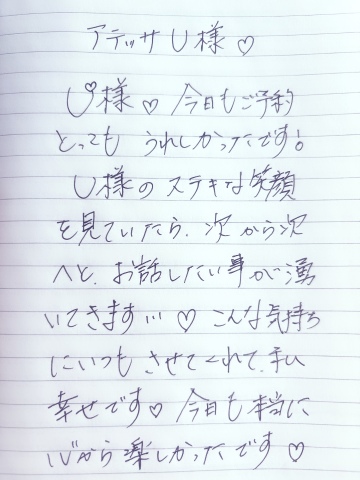 アテッサU様♡
U様♡今日もご予約
とっても うれしかったです!
U様のステキな笑顔
を見ていたら、次から次
へと、お話したい事が湧
いてきます…♡ こんな気持ち
にいつもさせてくれて、私
幸せです♡ 今日も本当に
心から楽しかったです♡